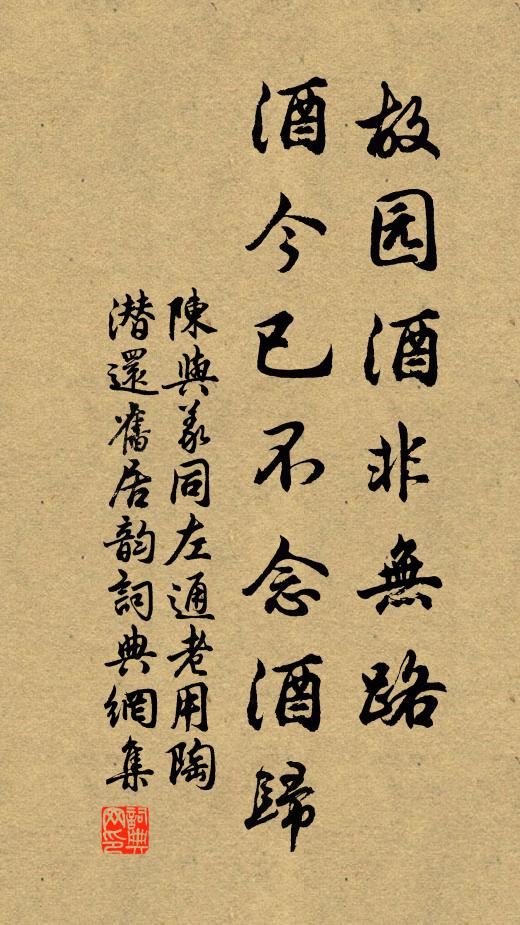 故园酒非無路
酒今已不念酒歸
陳與義同左通老用陶
潜還舊居韵詞典網集
詞典
网印